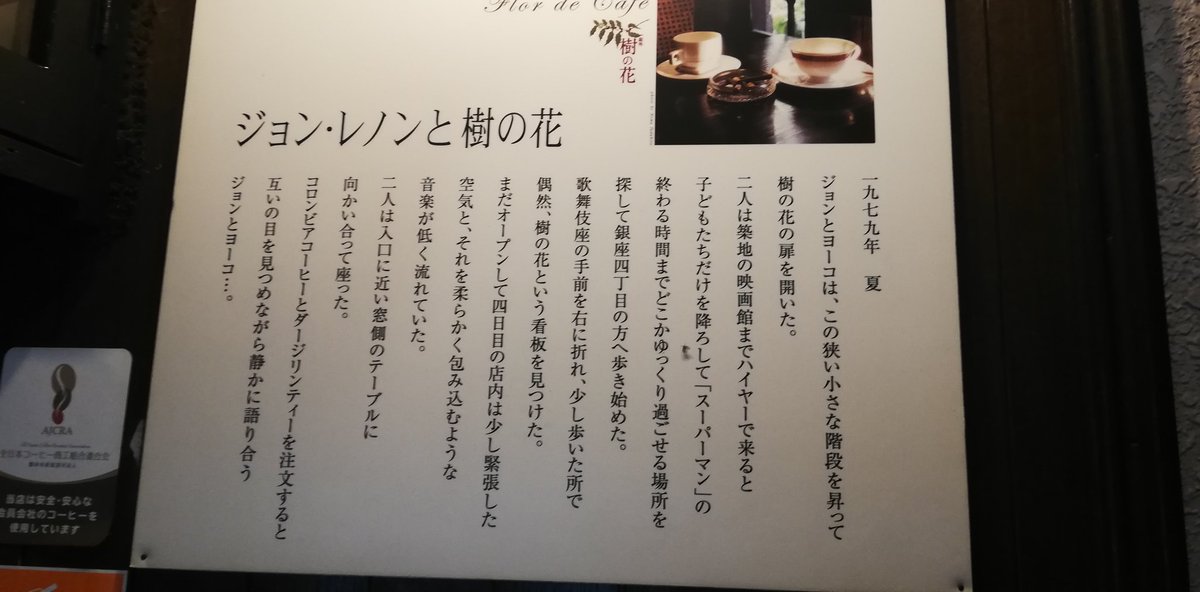 Flor de Café
樹の花
ジョン・レノンと樹の花
一九七九年 夏
ジョンとヨーコは、この狭い小さな階段を昇って
樹の花の扉を開いた。
二人は築地の映画館までハイヤーで来ると
子どもたちだけを降ろして「スーパーマン」の
終わる時間までどこかゆっくり過ごせる場所を
探して銀座四丁目の方へ歩き始めた。
歌舞伎座の手前を右に折れ、少し歩いた所で
偶然、樹の花という看板を見つけた。
まだオープンして四日目の店内は少し緊張した
空気と、それを柔らかく包み込むような
音楽が低く流れていた。
二人は入口に近い窓側のテーブルに
向かい合って座った。
コロンビアコーヒーとダージリンティーを注文すると
互いの目を見つめながら静かに語り合う
ジョンとヨーコ…。
AJCRA
全日本コーヒー商工組合連合会
当店は安全・安心な
会員会社のコーヒーを
使用しています